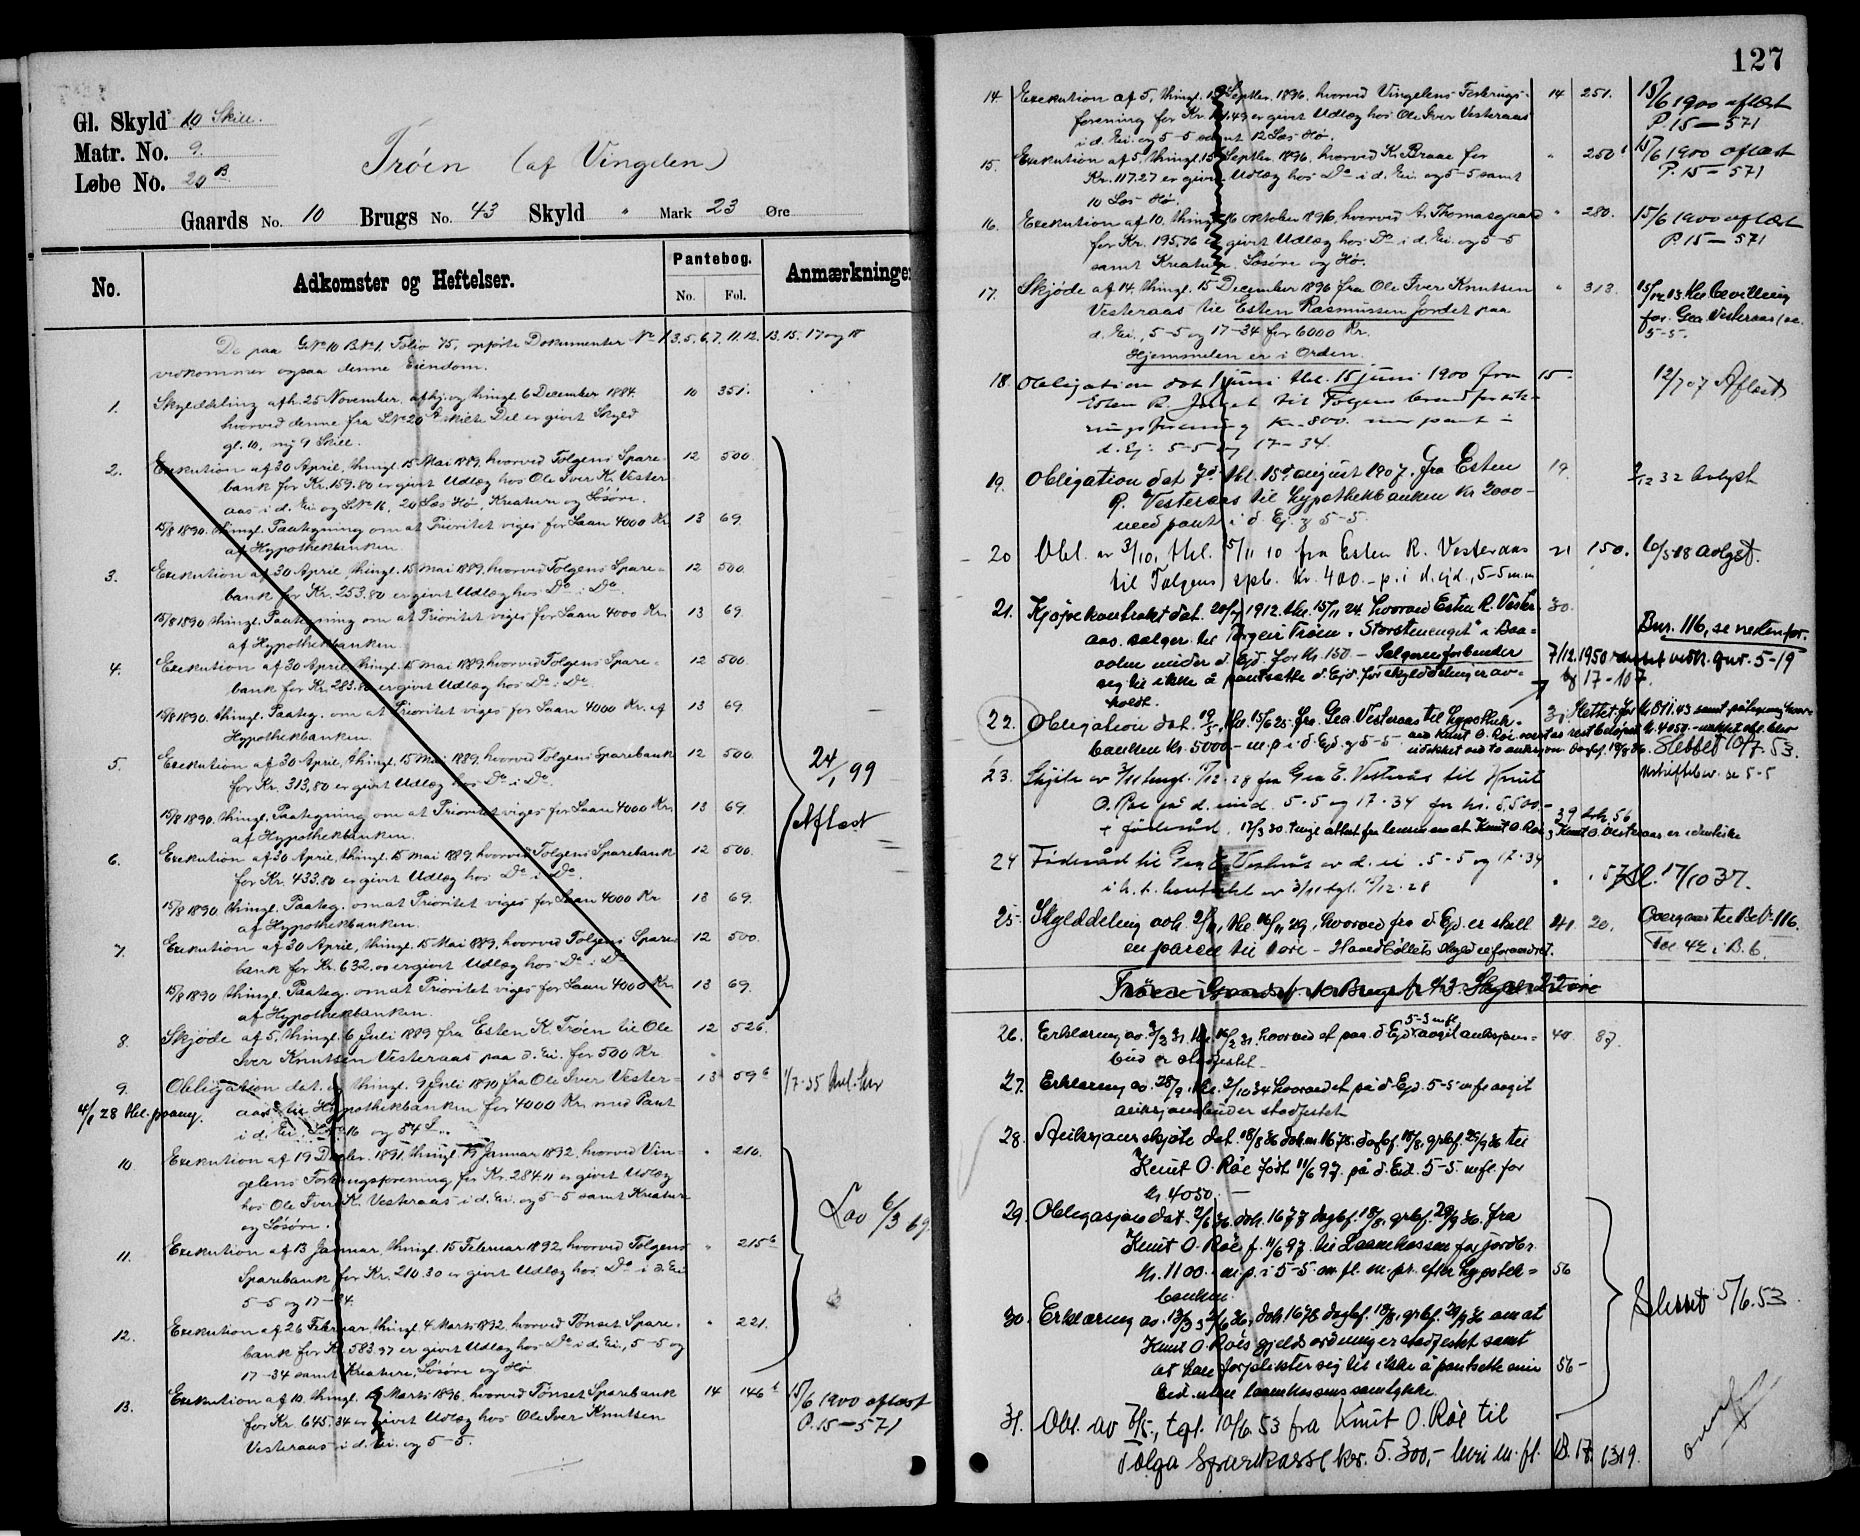 127
Gl. Skyld 10 Skill.
Matr. No. 9.
Løbe No. 20 B
Trøen (af Vingelen)
Gaards No. 10 Brugs No. 43 Skyld " Mark 23 Øre
No. Adkomster og Heftelser. Pantebog. No. Fol. Anmærkninger
De paa GNo 10 BNo 1. Folio 75, opførte Dokumenter No 1.3.5.6.7.11.12.13.15.17 og 18
vedkommer ogsaa denne Eiendom.
1. Skylddeling afh. 25 November, afhj. og thingl. 6 December 1884. 10 351.
hvorved denne fra LNo 20 A skilte Del er givet Skyld
gl. 10, ny 9 Skill.
2. Exekution af 30 April, thingl. 15 Mai 1889, hvorved Tolgens Spare- 12 500.
bank for Kr. 159.80 er givet Udlæg hos Ole Iver K. Vester-
aas i d. Ei. og LNo 16, 20 Læs Hø, Kreature og Løsøre.
15/8 1890. thingl. Paategning om at Prioritet viges for Laan 4000 Kr. 13 69.
af Hypothekbanken.
3. Exekution af 30 April, thingl. 15 Mai 1889, hvorved Tolgens Spare- 12 500.
bank for Kr. 253.80 er givet Udlæg hos Do i Do.
15/8 1890 thingl. Paategning om at Prioritet viges for Laan 4000 Kr. 13 69.
af Hypothekbanken.
4. Exekution af 30 April, thingl. 15 Mai 1889, hvorved Tolgens Spare- 12 500.
bank for Kr. 283.80 er givet Udlæg hos Do i Do.
15/8 1890. thingl. Paateg. om at Prioritet viges for Laan 4000 Kr. af 13 69.
Hypothekbanken.
5. Exekution af 30 April, thingl. 15 Mai 1889, hvorved Tolgens Sparebank 12 500.
for Kr. 313,80 er givet Udlæg hos Do i Do.
15/8 1890. thingl. Paategning om at Prioritet viges for Laan 4000 Kr. 13 69.
af Hypothekbanken.
24/1 99
Aflæst
6. Exekution af 30 April, thingl. 15 Mai 1889, hvorved Tolgens Sparebank 12 500.
for Kr. 433.80 er givet Udlæg hos Do i Do.
15/8 1890. thingl. Paateg. om at Prioritet viges for Laan 4000 Kr 13 69.
af Hypothekbanken.
7. Exekution af 30 April, thingl. 15 Mai 1889, hvorved Tolgens Spare- 12 500.
bank for Kr. 632.00 er givet Udlæg hos Do i Do
15/8 1890 thingl. Paateg. om at Prioritet viges for Laan 4000 Kr. 13 69.
af Hypothekbanken.
8. Skjøde af 5, thingl. 6 Juli 1889 fra Esten K. Trøen til Ole 12 526.
Iver Knutsen Vesteraas paa d. Ei. for 500 Kr.
9. Obligation dat. og thingl. 9 Juli 1890, fra Ole Iver Vester- 13 59 b 1/7-35 Avl.
4/1 28 thl. aas til Hypothekbanken for 4000 Kr. med Pant
i d. Ei. LNo 16 og 54
10 Exekution af 19 Decbr. 1891, thingl. 19 Januar 1892, hvorved Vin- " 210.
gelens Forbrugsforening for Kr. 284.11 er givet Udlæg
hos Ole Iver K. Vesteraas i d. Ei. og 5-5 samt Kreature
og Løsøre.
11. Exekution af 13 Januar, thingl. 15 Februar 1892, hvorved Tolgens " 215 b
Sparebank for Kr. 210.30 er givet Udlæg hos Do i d. Ei.
5-5 og 17-34.
Lov 6/3 69.
12. Exekution af 26 Februar, thingl. 4 Marts 1892, hvorved Tønset Spare- " 221.
bank for Kr. 583.97 er givet Udlæg hos Do i d. Ei., 5-5 og
17-34 samt Kreature, Løsøre og Hø
13. Exekution af 10, thingl. 12 Marts 1896, hvorved Tønset Sparebank 14 146 b 15/6 1900 aflæst
for Kr. 645.34 er givet Udlæg hos Ole Iver Knutsen P. 15-571
Vesteraas i d. Ei. og 5-5.
14. Exekution af 5, thingl. 15 Septbr. 1896, hvorved Vingelens Forbrugs- 14 251. 15/6 1900 aflæst
forening for Kr. er givet Udlæg hos Ole Iver Vesteraas P. 15-571
i d. Ei. og 5-5 samt 12 Læs Hø.
15. Exekution af 5, thingl. 15 Septbr. 1896, hvorved K. Braae for " 250 b 15/6 1900 aflæst
Kr. 117.27 er givet Udlæg hos Do i d. Ei. og 5-5 samt P. 15-571
10 Læs Hø.
16. Exekution af 10, thingl. 16 Oktober 1896, hvorved A. Thomasgaard " 280. 15/6 1900 aflæst
for Kr. 195,76 er givet Udlæg hos Do i d. Ei. og 5-5 P. 15-571
samt Kreature, Løsøre og Hø.
17. Skjøde af 14, thingl. 15 December 1896 fra Ole Iver Knutsen " 313. 15/12 13 thl. bevilling
Vesteraas til Esten Rasmussen Jordet paa for Gea Vesteraas, se
d. Ei., 5-5 og 17-34 for 6000 Kr. 5-5.
Hjemmelen er i Orden.
18. Obligation dat 1 juni thl. 15 juni 1900 fra 15 12/7 07 Aflæst
Esten R. Jordet til Tolgens brandforsik-
ringsforening Kr. 800. mod pant i
d. Ej. 5-5 og 17-34.
19. Obligation dat 7de thl. 15de august 1907. fra Esten 19. 9/12 32 avlyst
R. Vesteraas til hypothekbanken Kr 2000-
med pant i d Ej. og 5-5.
20 Obl. av 3/10, thl. 15/11 10 fra Esten R. Vesteraas 21 150. 6/5-18 avlyst.
til Tolgens spb. kr. 400.- p. i d. ejd., 5-5 m.m
21. Kjøpekontrakt dat. 1912. thl. 15/11 24. hvorved Esten R. Vester- 30.
aas sælger til Trøen "Storstenenget" i Baa- Bnr. 116, se nedenfor.
under d. Ejd. for kr. 150.- Sælgeren forbinder 7/12.1950 vedk. gnr. 5-19
sig til ikke å pantsette d. Ejd. før skylddeling er av- og 17-107.
holdt.
22. Obligation dat. 19/5, thl. 15/6 25. fra Gea Vesteraas til hypothek- 31
banken kr. 5000.- m. p. i d. Ejd. og 5-5 Slettet 10/7.53.
23. Skjøte av 3/11 tingl. 17/12-28 fra Gea E. Vesterås til Knut
O. Røe på d. eiend. 5-5 og 17-34 for kr. 5,500.-
+ føderåd. 39 56
24 Føderåd til Gea E. Vesterås av d. ei. 5-5 og 17-34 " 57 Sl. 17/10 37.
i h. t. kontrakt av 3/11 tgl. 17/12-28
25. Skylddeling avh. 2/11, thl. 16/11 29, hvorved fra d Ejd. er skilt 41 20. Overgaar til B.No 116.
en parcel til 1 øre - Hovedbøllets skyld uforandret. Fol 42 i B. 6.
26. Erklæring av 9/2 31. thl. 16/2 31, hvorved et paa d. Ejd. 5-5 mfl avgit auksjons- 40 87.
bud er stadfestet.
27. Erklæring av 28/9, thl. 2/10 34 hvorved et på d Ejd. 5-5 mfl avgit
auksjonsbud er stadfestet
28. Auksjonsskjøte dat. 18/8 36 dok.nr. 1678 dagbf. 18/8 grbf. 29/9 36 til
Knut O. Røe født 11/6 97. på d. Eid. 5-5 mfl. for
kr. 4050.-
29. Obligasjon dat. 2/6 36, dok. 1677 dagbf. 18/8. grbf. 29/9 36. fra
Knut O. Røe f. 11/6 97. til Laanekassen for jordbr.
kr. 1100.- m. p. i 5-5 m. fl. m. pr. efter hypotek- 56
banken.
Slettet 5/6.53.
30. Erklæring av. 13/3 2/6 36, dok 1676 dagbf. 18/8, grbf. 29/9 36 om at
Knut O. Røes gjeldsordning er stadfestet samt
at han forplikter sig til ikke å pantsette sin 56-
Eid. uten laanekassens samtykke.
31. Obl. av 7/5., tgl. 10/6. 53 fra Knut O. Røe til
Tolga Sparekasse kr. 5.300,- m. fl. B. 17. 1319.